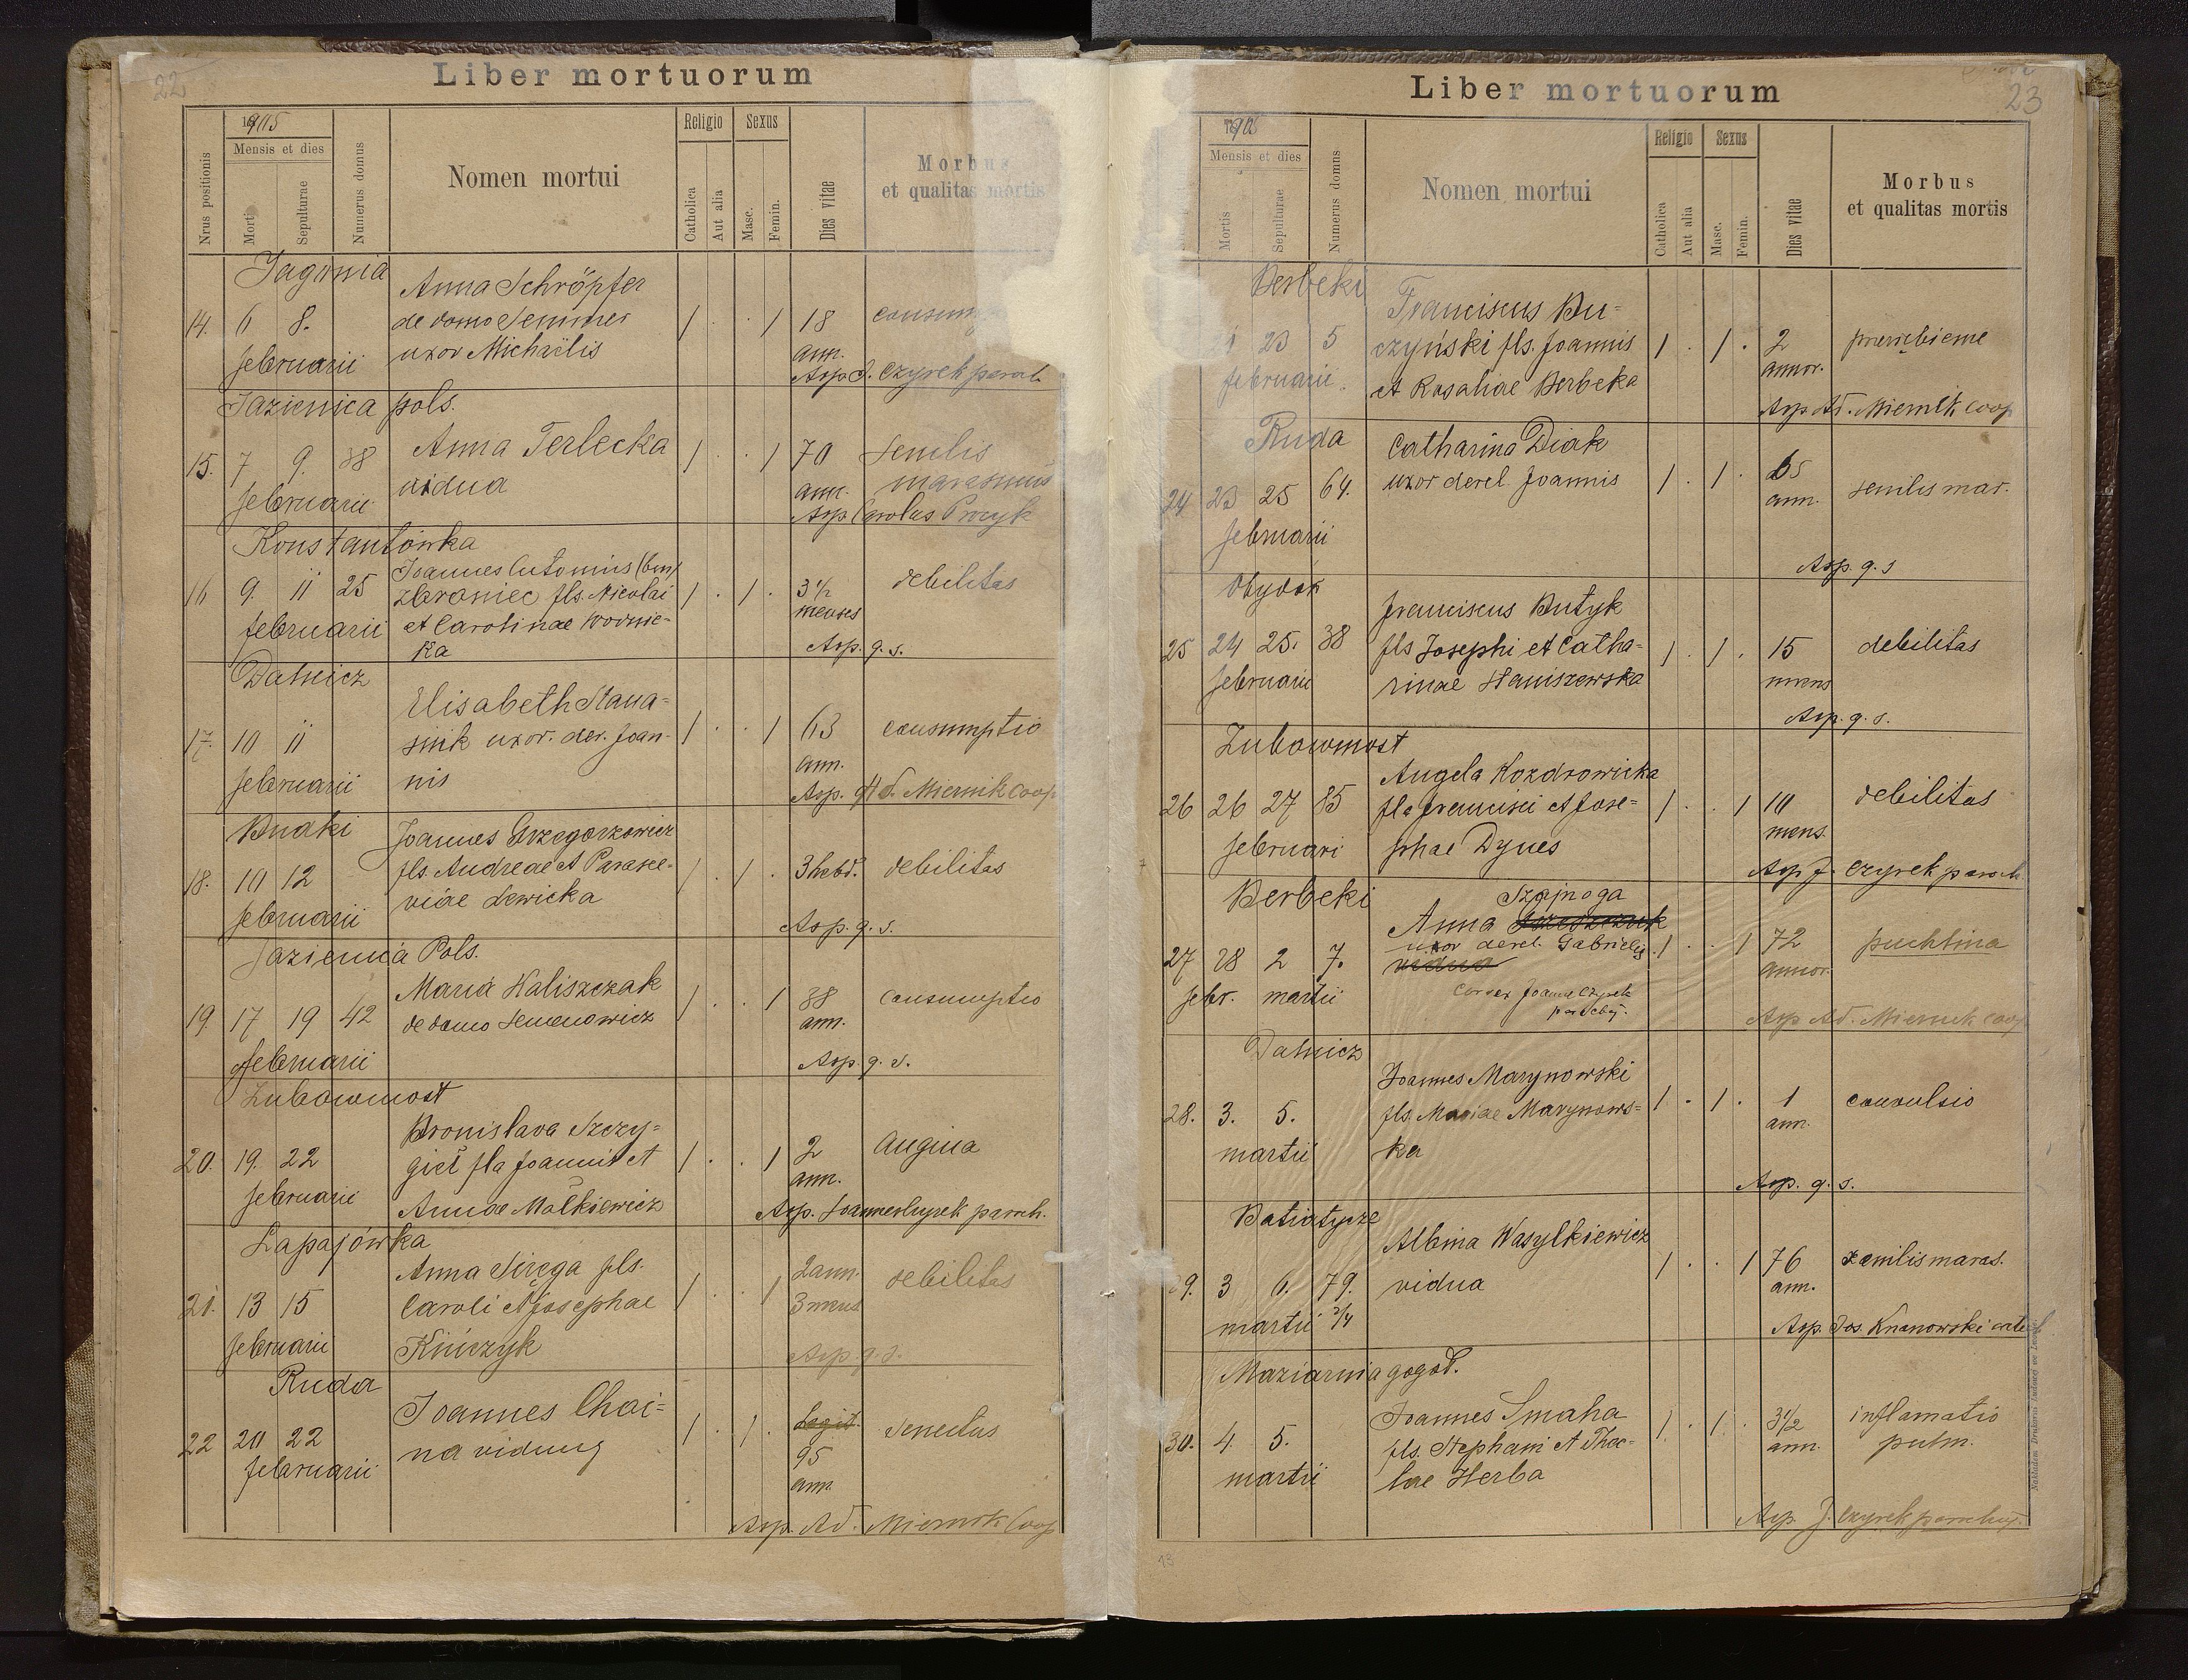 22
Liber mortuorum
1905
Mensis et dies
Nrus positionis
Mortis
Sepulturae
Numerus domus
Nomen mortui
Religio
Catholica
Aut alia
Sexus
Masc.
Femin.
Dies vitae
Morbus
et qualitas mortis
Jagonia
Anna Schröpfer
14. 6 8. de domo Semmer 1 . . 1 18 consum
februarii uxor Michaëlis ann.
Asp. J. Czyrek paroch.
Jazienica pols.
15. 7 9. 38 Anna Terlecka 1 . . 1 70 senilis
februarii vidua ann. marasmus
Asp Carolus Procyk
Konstantówka
Joannes Antonius (bin)
16 9. 11 25 Zbroniec fls. Nicolai 1 . 1 . 3 1/2 debilitas
februarii et Carolinae Woznic- menses
ka Asp. q. s.
Dalnicz
Elisabeth Stana-
17. 10 11 snik uxor. der. Joan- 1 . . 1 63 consumptio
februarii nis ann.
Asp. Ad. Miernik coop
Budki
Joannes Grzegorzewicz
18. 10 12 fls. Andreae et Parasce- 1 . 1 . 3 hebd. debilitas
februarii viae Lewicka
Asp. q. s.
Jazienica Pols.
Maria Kaliszczak
19 17 19 42 de domo Semenowicz 1 . . 1 38 consumptio
februarii ann.
Asp. q. s.
Zubowmost
Bronislava Szczy-
20. 19. 22 gieł fla Joannis et 1 . . 1 2 Angina
februarii Annae Małkiewicz ann.
Asp. Joannes Czyrek paroch.
Łapajówka
Anna Siręga fls. 2 ann.
21. 13 15 Caroli et Josephae 1 . . 1 3 mens debilitas
februarii Kińczyk
Asp. q. s.
Ruda
Joannes Choi-
22 20 22 na viduus 1 . 1 . 95 senectus
februarii ann.
Asp. Ad. Miernik Coop
23
Liber mortuorum
190
Mensis et dies
Mortis
Sepulturae
Numerus domus
Nomen mortui
Religio
Catholica
Aut alia
Sexus
Masc.
Femin.
Dies vitae
Morbus
et qualitas mortis
Berbeki
Franciscus Bu-
1 23 5 czyński fls. Joannis 1 . 1 . 2
februarii. et Rosaliae Berbeka annor.
Asp Ad. Miernik Coop
Ruda
Catharina Diak
24 23 25 64. uxor derel. Joannis 1 . 1 . 65 senilis mar.
februarii ann.
Asp. q. s
Obydów
Franciscus Butyk
25 24 25. 38 fls Josephi et Catha- 1 . 1 . 15 debilitas
februarii rinae Staniszewska mens
Asp. q. s.
Zubowmost
Angela Kozdrowicka
26 26 27 85 fla Francisci et Jose- 1 . . 1 10 debilitas
februari phae Dynes mens.
Asp J. Czyrek paroch.
Berbeki
Szajnoga
Anna
uxor derel. Gabrielis
27 28 2 7. vidua 1 . . 1 72 puchlina
febr. martii annor.
Correx Joannes Czyrek
parochus.
Asp Ad. Miernik Coop
Dalnicz
Joannes Marynowski
28. 3. 5. fls. Mariae Marynows- 1 . 1 . 1 convulsio
martii ka ann.
Asp. q. s.
Batiatycze
Albina Wasylkiewicz
29. 3 6. 79. vidua 1 . . 1 76 senilis maras.
martii 2/4 ann.
Asp. Jos. Knanowski catech
Maziarnia gogoł.
Joannes Smaha
30. 4. 5. fls. Stephani et Thec- 1 . 1 . 3 1/2 inflamatio
martii lae Herba ann. pulm.
Asp. J. Czyrek parochus.
Nakładem Drukarni Ludowej we Lwowie